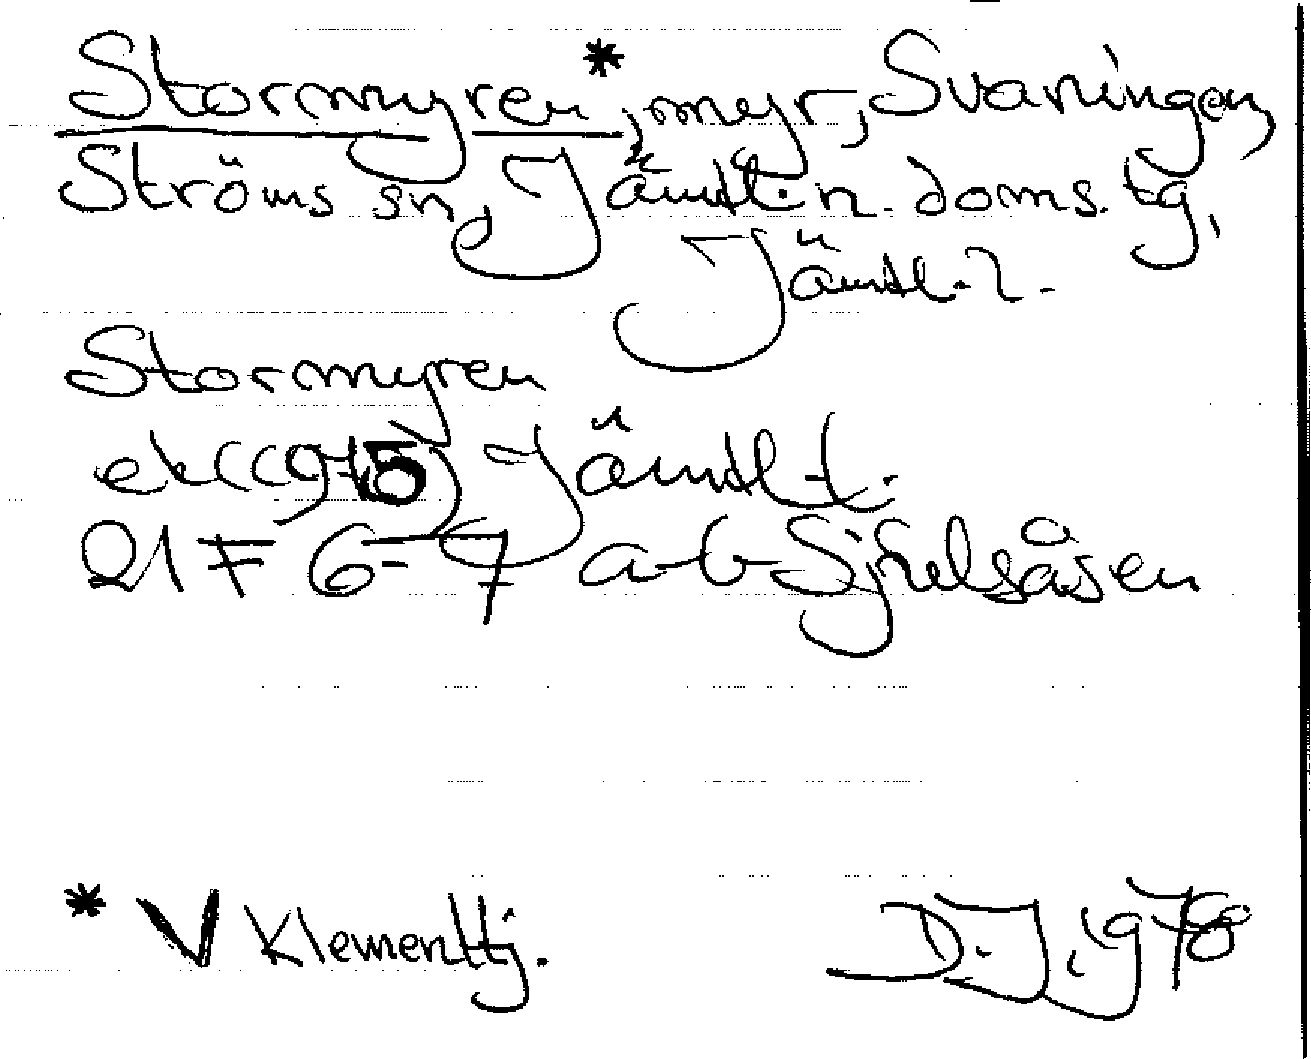 Stormyren*, myr, Svaningen,
Ströms sn, Jämtl. n. doms. tg,
Jämtl. l.
Stormyren
ek (1915) Jämtl. t.
21 F 6-7 a-b Sjulsåsen
* V Klementtj.
D. J. 1978